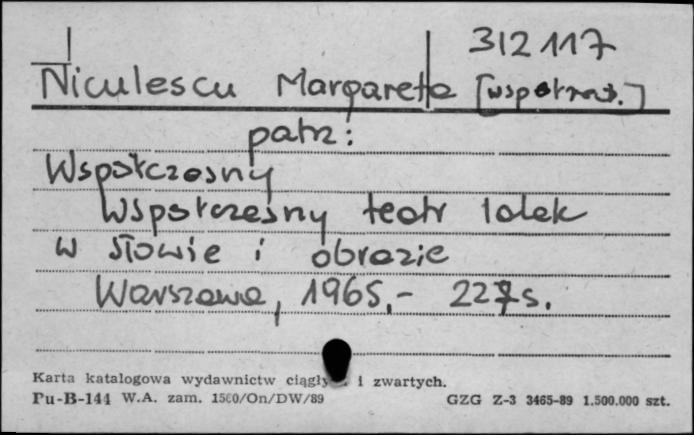 312117
Niculescu Margareta [współprac.]
patrz:
Współczesny
Współczesny teatr lalek
w słowie i obrazie
Warszawa, 1965,- 227 s.
Karta katalogowa wydawnictw i zwartych.
Pu-B-144 W.A. zam. 1560/On/DW/89 GZG Z-3 3465-89 1.500.000 szt.